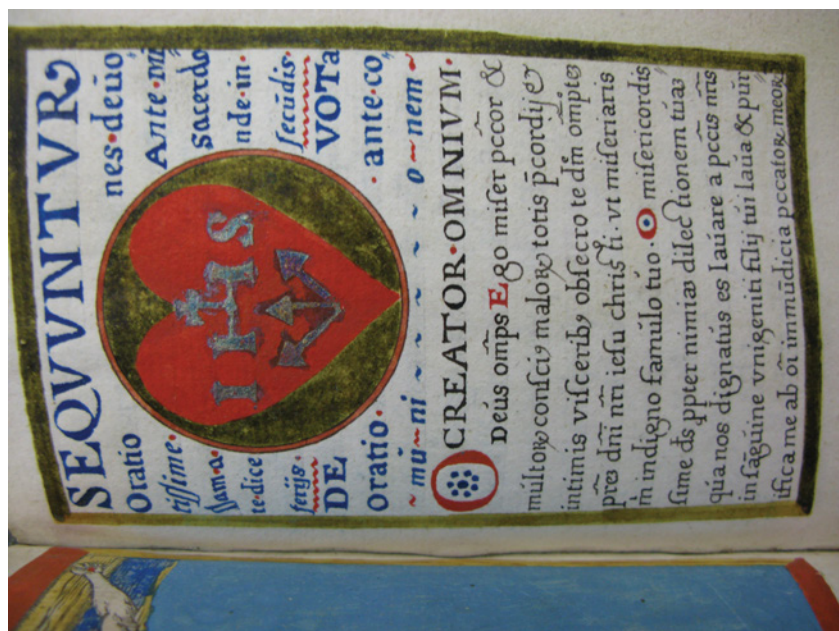 SEQVVNTVRꝰ
Oratio nes·deūo
tissime· Ante·mi
ssam·a sacerdo
te·dice nde·in·
ferijs· secūdis·
IHS
DE VOTa
Oratio· ·ante·co
~mū~ni~~~~~o~nem~
OCREATOR·OMNIVM·
Deūs om̄ps Ego miser pccor &
mūltoꝝ consciꝰ maloꝝ totis p̄cordijꝰ
intimis visceribꝰ obsecro te dm̄ omptēs
pr̄es dn̄i nr̄i iesu christi· vt miseriaris
m̄ indigno famūlo tuo· O misericordis
sime ds ꝓpter nimiāꝫ dilectionem tūaꝫ
qūia nos dignatūs es laūare a pccis nr̄is
in sāgūine vnigeniti filij tūi laūa & pūr
ifica me ab oī immūdicia pccatoꝝ meoꝝ